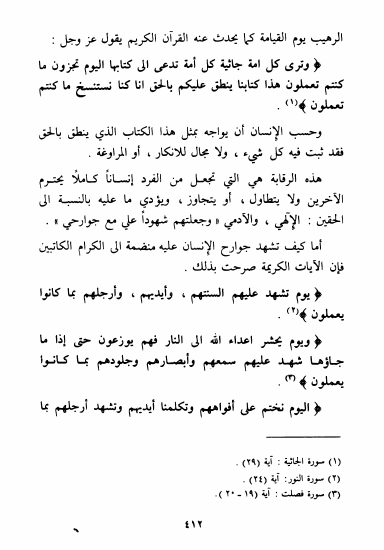 الرهيب يوم القيامة كما يحدث عنه القرآن الكريم يقول عز وجل :
﴿ وترى كل امة جاثية كل أمة تدعى الى كتابها اليوم تجزون ما
كنتم تعملون هذا كتابنا ينطق عليكم بالحق انا كنا نستنسخ ما كنتم
تعملون ﴾(١) .
وحسب الإنسان أن يواجه بمثل هذا الكتاب الذي ينطق بالحق
فقد ثبت فيه كل شيء ، ولا مجال للانكار ، أو المراوغة .
هذه الرقابة هي التي تجعل من الفرد إنساناً كاملًا يحترم
الآخرين ولا يتطاول ، أو يتجاوز ، ويؤدي ما عليه بالنسبة الى
الحقين : الإلهي ، والآدمي « وجعلتهم شهوداً علي مع جوارحي » .
أما كيف تشهد جوارح الإنسان عليه منضمة الى الكرام الكاتبين
فإن الآيات الكريمة صرحت بذلك .
﴿ يوم تشهد عليهم السنتهم ، وأيديهم ، وأرجلهم بما كانوا
يعملون ﴾(٢) .
﴿ ويوم يحشر اعداء الله الى النار فهم يوزعون حتى إذا ما
جاؤها شهد عليهم سمعهم وأبصارهم وجلودهم بما كانوا
يعملون ﴾(٣) .
﴿ اليوم نختم على أفواههم وتكلمنا أيديهم وتشهد أرجلهم بما
(١) سورة الجاثية : آية (٢٩) .
(٢) سورة النور : آية (٢٤) .
(٣) سورة فصلت : آية (١٩ ـ ٢٠) .
٤١٢